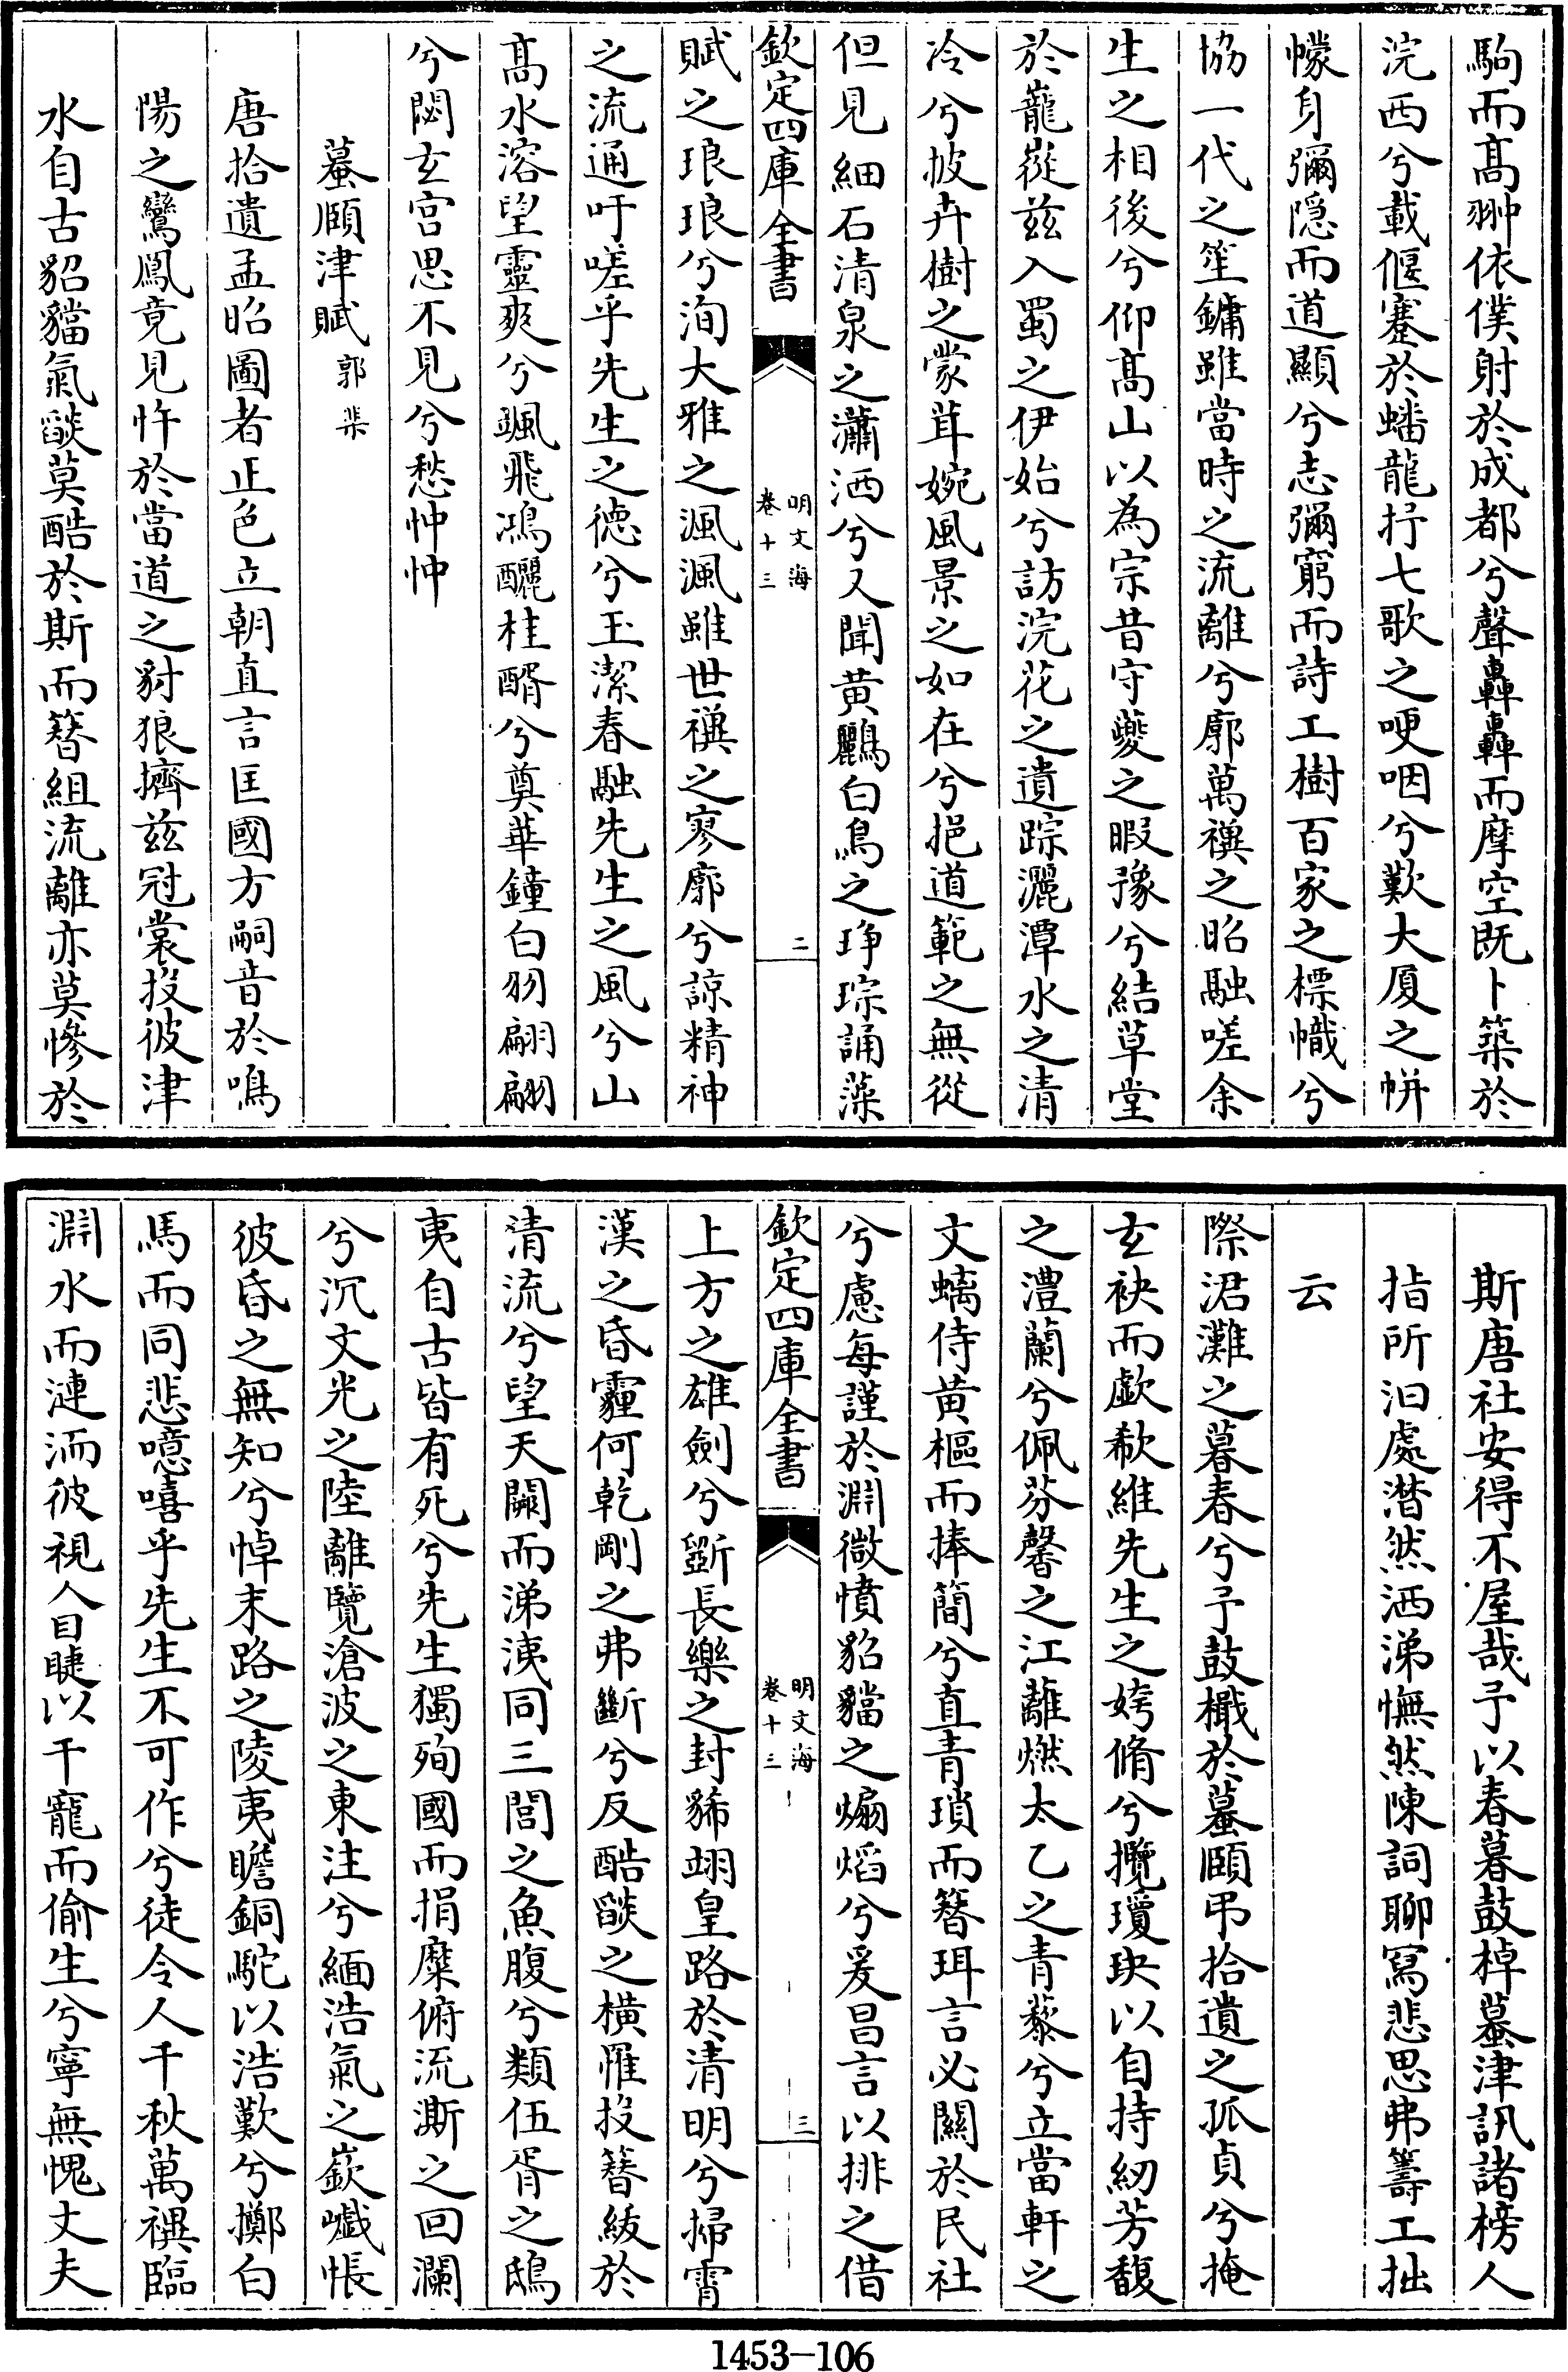 駒而髙翀依僕射於成都兮聲轟轟而摩空既卜築於
浣西兮載偃蹇於蟠龍抒七歌之哽咽兮歎大厦之帡
幪身彌隠而道顯兮志彌窮而詩工樹百家之標幟兮
協一代之笙鏞雖當時之流離兮廓萬禩之昭融嗟余
生之相後兮仰髙山以為宗昔守夔之暇豫兮結草堂
於巃嵸兹入蜀之伊始兮訪浣花之遺踪灑潭水之清
冷兮披卉樹之蒙茸婉風景之如在兮挹道範之無從
但見細石清泉之瀟洒兮又聞黄鸝白鳥之琤琮誦藻
欽定四庫全書
明文海
卷十三
二
賦之琅琅兮洵大雅之渢渢雖世禩之寥廓兮諒精神
之流通吁嗟乎先生之德兮玉潔春融先生之風兮山
髙水溶望靈爽兮颯飛鴻釃桂醑兮奠華鐘白羽翩翩
兮閟玄宫思不見兮愁忡忡
蟇頤津賦
郭棐
唐拾遺孟昭圖者正色立朝直言匡國方嗣音於鳴
陽之鸞鳳竟見忤於當道之豺狼擠兹冠裳投彼津
水自古貂璫氣燄莫酷於斯而簪組流離亦莫慘於
斯唐社安得不屋哉予以春暮鼓棹蟇津訊諸榜人
指所汩處潸然洒涕憮然陳詞聊寫悲思弗籌工拙
云
際涒灘之暮春兮予鼓檝於蟇頤弔拾遺之孤貞兮掩
玄袂而歔欷維先生之姱脩兮攬瓊玦以自持紉芳馥
之澧蘭兮佩芬馨之江離燃太乙之青藜兮立當軒之
文螭侍黄樞而捧簡兮直青瑣而簪珥言必關於民社
兮慮每謹於淵微憤貂璫之煽熖兮爰昌言以排之借
欽定四庫全書
明文海
卷十三
三
上方之雄劍兮斲長樂之封豨翊皇路於清明兮掃霄
漢之昏霾何乾剛之弗斷兮反酷燄之横罹投簪紱於
清流兮望天闕而涕洟同三閭之魚腹兮類伍胥之鴟
夷自古皆有死兮先生獨殉國而捐糜俯流澌之回瀾
兮沉文光之陸離覽滄波之東注兮緬浩氣之嶔巇悵
彼昏之無知兮悼末路之陵夷瞻銅駝以浩歎兮擲白
馬而同悲噫嘻乎先生不可作兮徒令人千秋萬禩臨
淵水而漣洏彼視人目睫以干寵而偷生兮寧無愧丈夫
1453—106